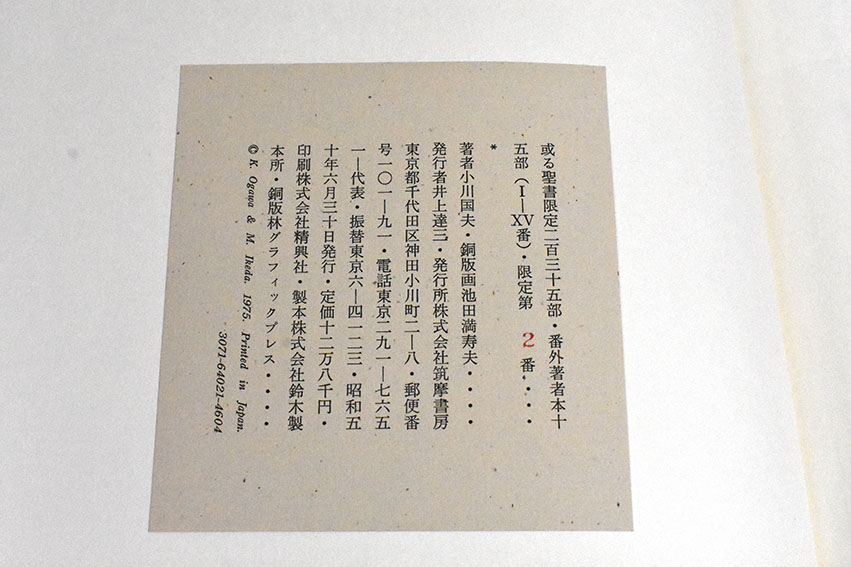 或る聖書限定二百三十五部・番外著者本十
五部（I—XV番）・限定第 2 番・・・・
*
著者小川国夫・銅版画池田満寿夫・・・・
発行者井上達三・発行所株式会社筑摩書房
東京都千代田区神田小川町二—八・郵便番
号一〇一—九一・電話東京二九一—七六五
一—代表・振替東京六—四一二三・昭和五
十年六月三十日発行・定価十二万八千円・
印刷株式会社精興社・製本株式会社鈴木製
本所・銅版林グラフィックプレス・・・・
© K. Ogawa & M. Ikeda. 1975. Printed in Japan.
3071-64021-4604